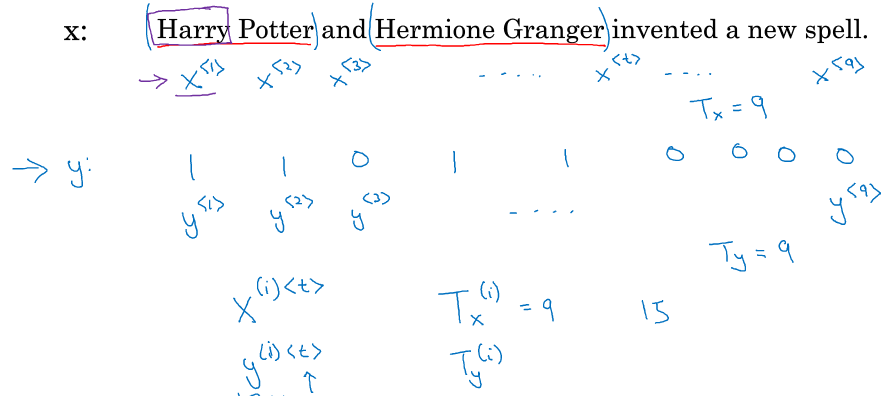 x: Harry Potter and Hermione Granger invented a new spell.
→ x<1> x<2> x<3> ..... x<t> .... x<9>
Tx = 9
→ y: 1 1 0 1 1 0 0 0 0
y<1> y<2> y<3> .... y<9>
Ty = 9
x(i)<t> Tx(i) = 9 15
y(i)<t> Ty(i)
↑